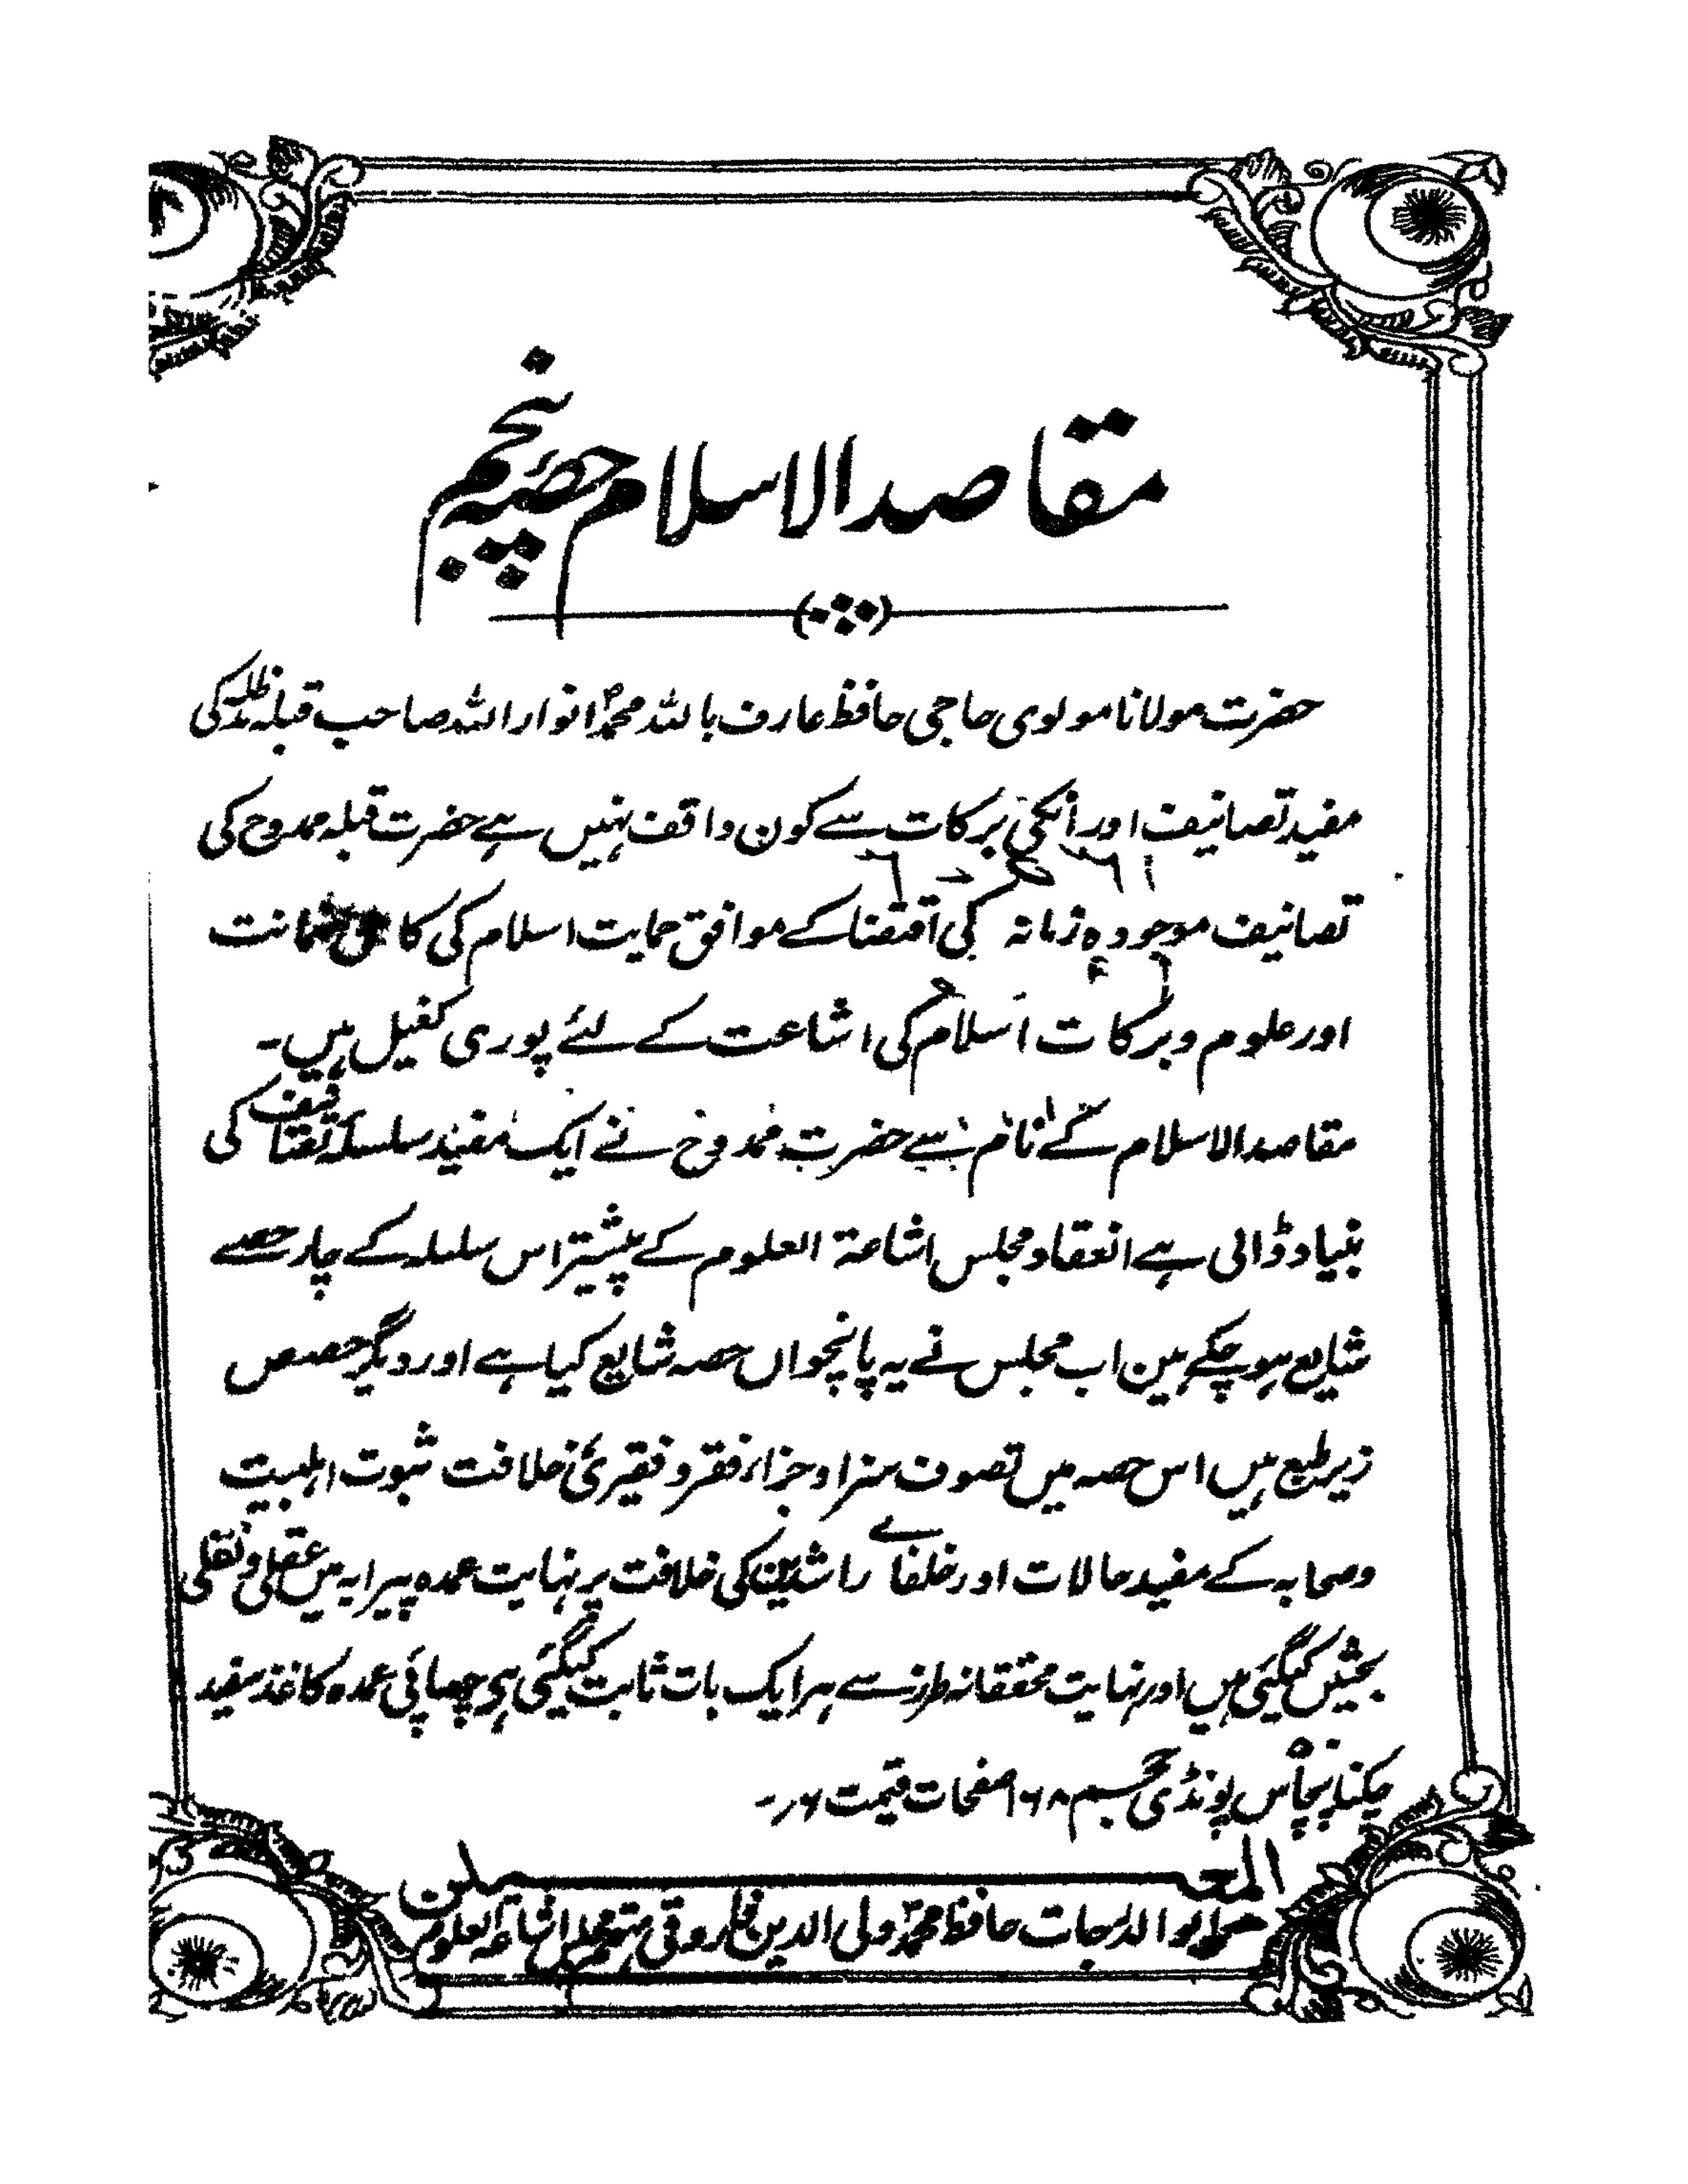 مقاصد الاسلام حصۂ پنجم
حضرت مولانا مولوی حاجی حافظ عارف باللہ محمد انوار اللہ صاحب قبلہ مدظلہ کی
مفید تصانیف اور اُنکی برکات سے کون واقف نہیں ہے حضرت قبلہ ممدوح کی
تصانیف موجودہ زمانہ کی اقتضا کے موافق حمایت اسلام کی کامل ضمانت
اور علوم و برکات اسلام کی اشاعت کے لئے پوری کفیل ہیں۔
مقاصد الاسلام کے نام سے حضرت ممدوح نے ایک مفید سلسلہ کی
بنیاد ڈالی ہے انعقاد مجلس اشاعۃ العلوم کے پیشتر اس سلسلہ کے چار حصے
شایع ہو چکے ہین اب مجلس نے یہ پانچواں حصہ شایع کیا ہے اور دیگر حصص
زیر طبع ہیں اس حصہ میں تصوف سزا و جزاء فقر و فقیری خلافت ثبوت اہلبیت
وصحابہ کے مفید حالات اور خلفاے راشدین کی خلافت پر نہایت عمدہ پیرایہ میں عقلی و نقلی
بحثیں کیگئی ہیں اور نہایت محققانہ طرز سے ہر ایک بات ثابت کیگئی ہی چھپائی عمدہ کاغذ سفید
چکنا پچاس پونڈی حجم ۱۶۸ صفحات قیمت ۶ر۔
المعلن
ابو الدرجات حافظ محمد ولی الدین فاروقی مہتمم مجلس اشاعۃ العلوم